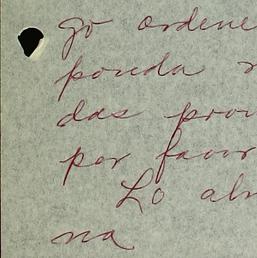 go ordene
ponda
das prov
por favor
Lo abr
na